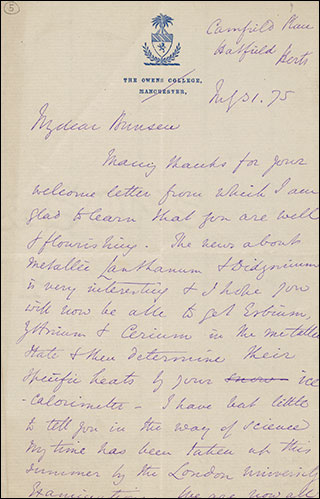 5
Camfield Place
Hatfield Herts
THE OWENS COLLEGE,
MANCHESTER,
July 31. 75
My dear Bunsen
Many thanks for your
welcome letter from which I am
glad to learn that you are well
& flourishing. The news about
Metallic Lanthanum & Didymium
is very interesting & I hope you
will now be able to get Erbium,
Yttrium & Cerium in the metallic
state & then determine their
specific heats by your snow ice
-calorimeter - I have but little
to tell you in the way of science
My time has been taken up this
summer by the London University
We are now all